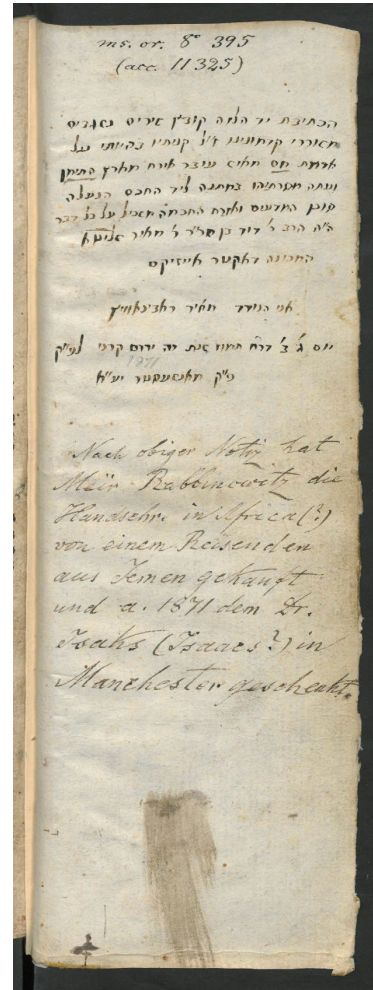 ms. or. 8° 395
(acc. 11325)
הכתיבת יד הלזה
קדמונינו ז"ל קניתיו בהיותי על
אדמת חם מאיש עובר אורח מארץ התימן
ונתתי במתנה ליד החכם הנעלה
על כל דבר
ה"ה הרב ר' דוד בן מאיר
המכונה דאקטר אייזיקס
אני הנודד מאיר ראבינאוויץ
יום ג' ב' דר"ח תמוז שנת לפ"ק
1871
פ"ק מאנשעסטער יע"א
Nach obiger Notiz hat
Meïr Rabbinowitz die
Handschr. in Africa (?)
von einem Reisenden
aus Jemen gekauft
und a. 1871 dem Dr.
Isaks (Isaacs?) in
Manchester geschenkt.